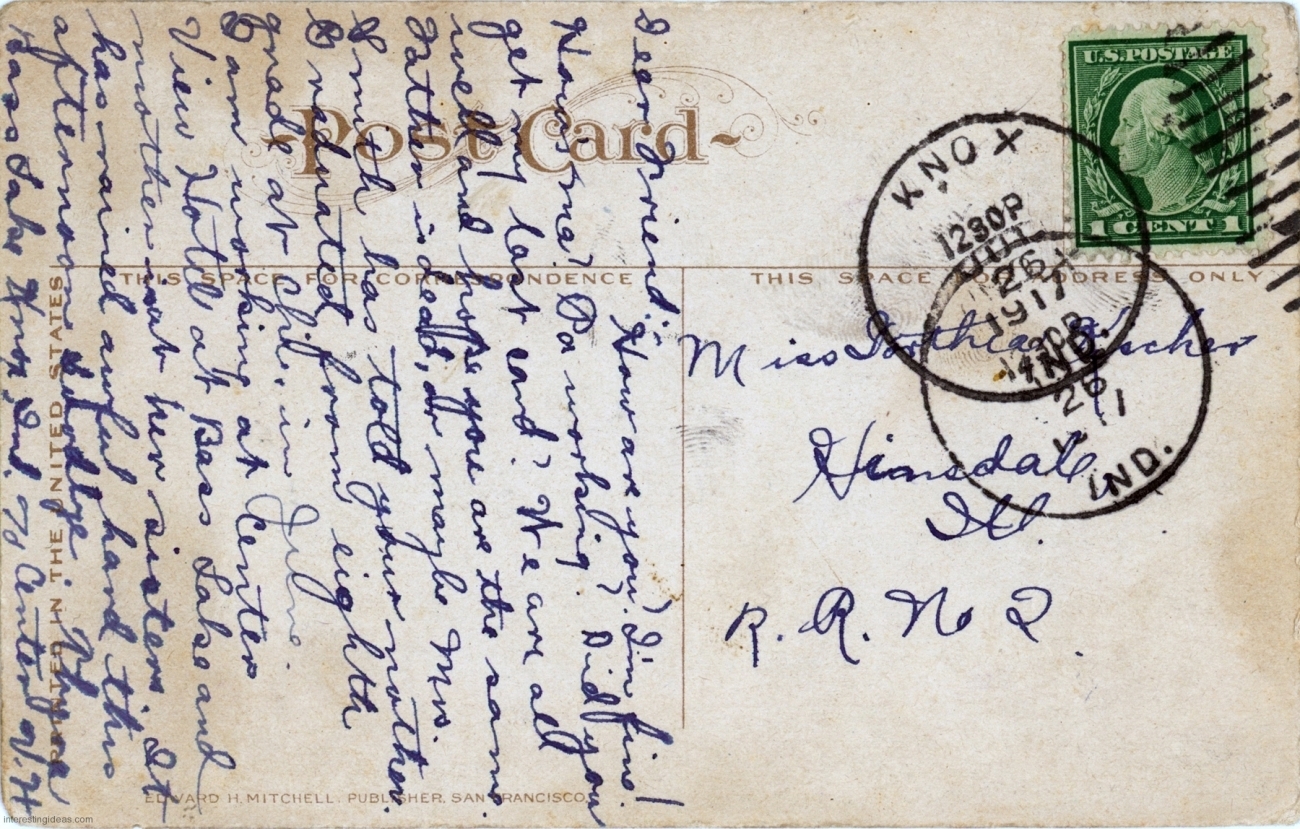 Dear Friend:-
How are you? I'm fine!
How's ma? Pa working? Did you
get my last card? We are all
well and hope you are the same
Father is dead, or maybe Mrs.
Smith has told your mother.
I Graduated from eighth
grade at Chi. in June.
I am working at Center
View Hotel at Bass Lake and
mother is at her sisters. It
has rained awful hard this
afternoon.
Bass Lake Knox, Ind. % Center V. H
Post Card
THIS SPACE FOR CORRESPONDENCE
THIS SPACE FOR ADDRESS ONLY
PRINTED IN THE UNITED STATES
EDWARD H. MITCHELL, PUBLISHER, SAN FRANCISCO.
U.S. POSTAGE
1 CENT 1
KNOX
1230P
26
1917
IND.
26
IND.
Miss
Hinsdale
Ill.
R. R. No 2.
interestingideas.com